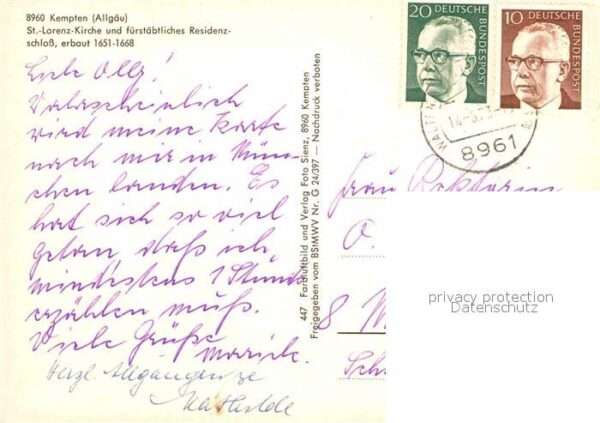 8960 Kempten (Allgäu)
St.-Lorenz-Kirche und fürstäbtliches Residenz-
schloß, erbaut 1651-1668
Liebe Olly!
Wahrscheinlich
wird meine Karte
nach mir in Mün-
chen landen. Es
hat sich so viel
getan, daß ich
mindestens 1 Stunde
erzählen muß.
Viele Grüße
Herzl.
Mathilde
447 Farbluftbild und Verlag Foto Sienz, 8960 Kempten
Freigegeben vom BStMWV Nr. G 24/397 — Nachdruck verboten
20
DEUTSCHE
BUNDESPOST
10
DEUTSCHE
BUNDESPOST
8961
Frau Rektorin
O.
8 M
Sch
privacy protection
Datenschutz